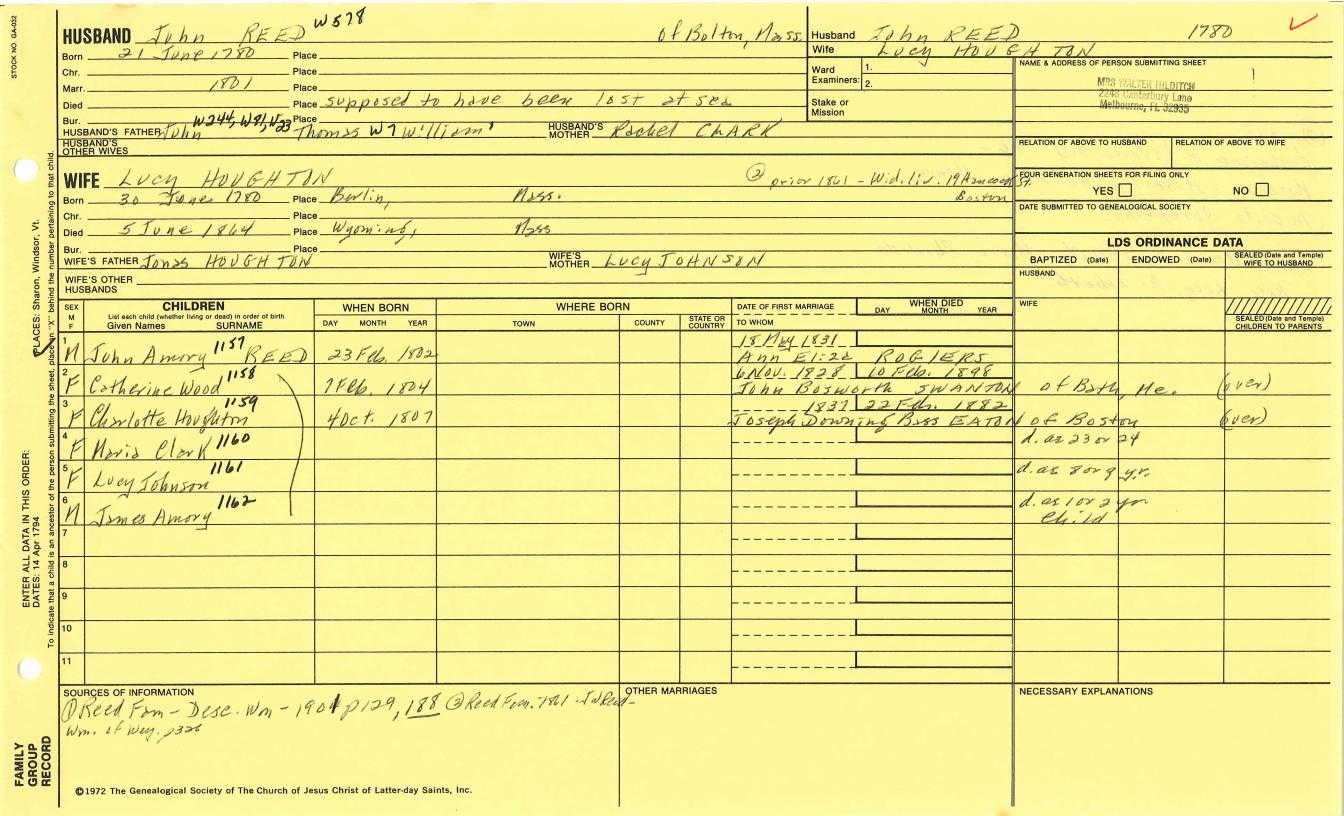 STOCK NO. GA-032
HUSBAND John REED W578 of Bolton, Mass.
Born 21 June 1780 Place
Chr. Place
Marr. 1801 Place
Died Place supposed to have been lost at sea
Bur. Place
HUSBAND'S FATHER John W244, W81, W23 Thomas W7 William' HUSBAND'S MOTHER Rachel CLARK
HUSBAND'S OTHER WIVES
Husband John REED 1780
Wife Lucy HOUGHTON
Ward Examiners: 1.
2.
Stake or Mission
NAME & ADDRESS OF PERSON SUBMITTING SHEET
MRS WALTER HILDITCH
2248 Canterbury Lane
Melbourne, FL 32935
RELATION OF ABOVE TO HUSBAND RELATION OF ABOVE TO WIFE
FOUR GENERATION SHEETS FOR FILING ONLY
YES NO
DATE SUBMITTED TO GENEALOGICAL SOCIETY
WIFE Lucy HOUGHTON ② prior 1861 - Wid. liv. 19 Hancock St.
Boston
Born 30 June 1780 Place Berlin, Mass.
Chr. Place
Died 5 June 1864 Place Wyoming, Mass
Bur. Place
WIFE'S FATHER Jonas HOUGHTON WIFE'S MOTHER Lucy JOHNSON
WIFE'S OTHER HUSBANDS
LDS ORDINANCE DATA
BAPTIZED (Date) ENDOWED (Date) SEALED (Date and Temple) WIFE TO HUSBAND
HUSBAND
WIFE
SEALED (Date and Temple) CHILDREN TO PARENTS
SEX M F
CHILDREN
List each child (whether living or dead) in order of birth
Given Names SURNAME
WHEN BORN
DAY MONTH YEAR
WHERE BORN
TOWN COUNTY STATE OR COUNTRY
DATE OF FIRST MARRIAGE
TO WHOM
WHEN DIED
DAY MONTH YEAR
1 M John Amory 1157 REED 23 Feb. 1802 18 May 1831
Ann Eliza ROGERS
2 F Catherine Wood 1158 7 Feb. 1804 6 Nov. 1828 10 Feb. 1898
John Bosworth SWANTON of Bath, Me. (over)
3 F Charlotte Houghton 1159 4 Oct. 1807 1837 22 Feb. 1882
Joseph Downing Bass EATON of Boston (over)
4 F Maria Clark 1160 d. as 23 or 24
5 F Lucy Johnson 1161 d. as 8 or 9 yr.
6 M James Amory 1162 d. as 1 or 2 yr
Child
7
8
9
10
11
SOURCES OF INFORMATION
① Reed Fam - Desc. Wm - 1901 p129, 188 ② Reed Fam. 1861 - JW Reed -
Wm. of Wey. p326
OTHER MARRIAGES
NECESSARY EXPLANATIONS
©1972 The Genealogical Society of The Church of Jesus Christ of Latter-day Saints, Inc.
FAMILY GROUP RECORD
ENTER ALL DATA IN THIS ORDER:
DATES: 14 Apr 1794
PLACES: Sharon, Windsor, Vt.
To indicate that a child is an ancestor of the person submitting the sheet, place an "X" behind the number pertaining to that child.